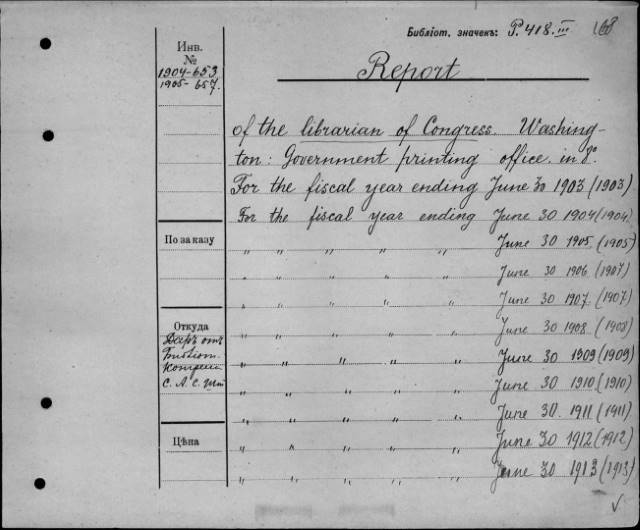 Библіот. значекъ: P. 418. III 168
Инв.
№
1904-653
1905-657.
Report
of the librarian of Congress. Washing-
ton: Government printing office. in 8º.
For the fiscal year ending June 30 1903 (1903)
For the fiscal year ending June 30 1904 (1904.)
По заказу
" " " " " June 30 1905 (1905)
" " " " " June 30 1906 (1907)
" " " " " June 30 1907. (1907)
Откуда
" " " " " June 30 1908. (1908)
Даръ отъ
" " " " " June 30 1909 (1909)
С. А. С. Шт
" " " " " June 30 1910 (1910)
" " " " " June 30. 1911 (1911)
Цѣна
" " " " " June 30 1912 (1912)
" " " " " June 30 1913 (1913)